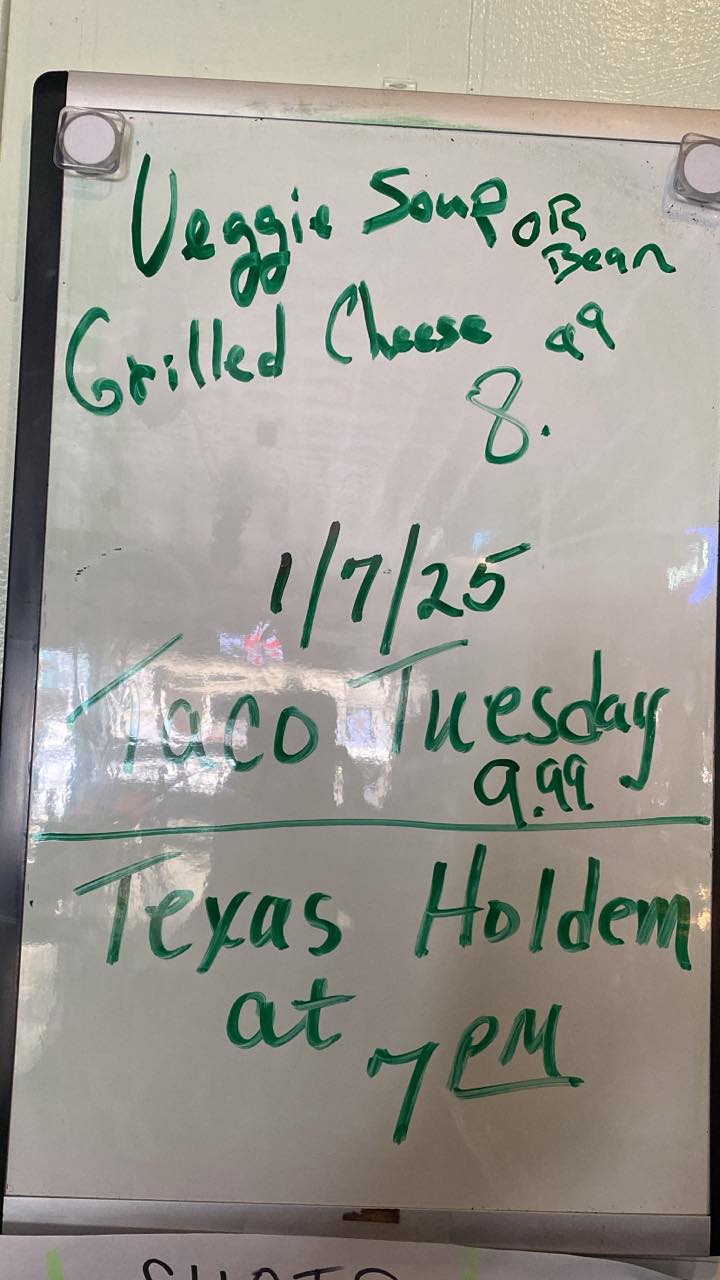 Veggie Soup OR Bean
Grilled Cheese
8.99
1/7/25
Taco Tuesday
9.99
Texas Holdem
at 7 PM